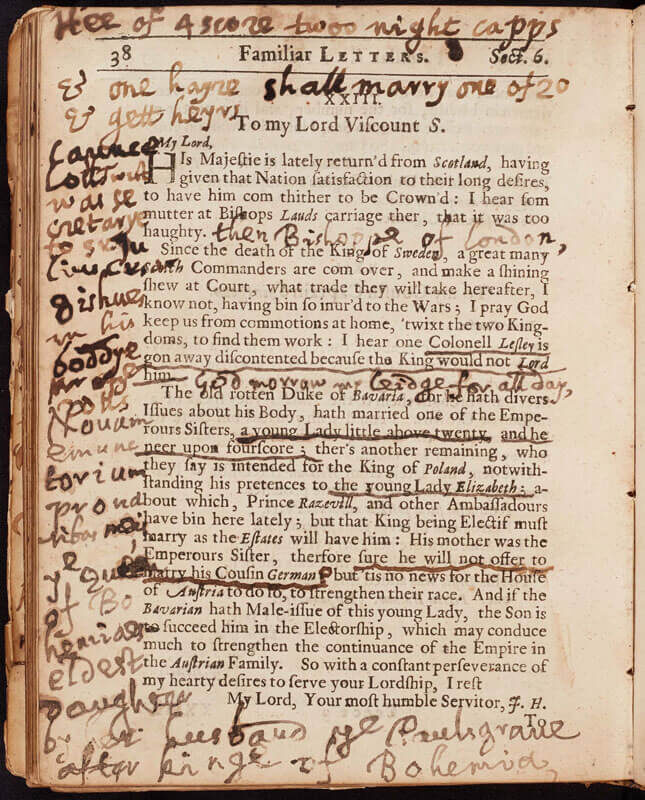 Hee of 4 score twoo night capps
38 Familiar LETTERS. Sect. 6.
& one hayre shall marry one of 20
XXIII.
& gett heyrs
To my Lord Viscount S.
My Lord,
HIs Majeſtie is lately return'd from Scotland, having
given that Nation ſatisfaction to their long deſires,
to have him com thither to be Crown'd : I hear ſom
mutter at Biſhops Lauds carriage ther, that it was too
haughty. then Bishoppe of London,
Since the death of the King of Sweden, a great many
Commanders are com over, and make a ſhining
ſhew at Court, what trade they will take hereafter, I
know not, having bin ſo inur'd to the Wars ; I pray God
keep us from commotions at home, 'twixt the two King-
doms, to find them work : I hear one Colonell Lesley is
gon away diſcontented becauſe the King would not Lord
him. God morrow my for all day,
The old rotten Duke of Bavaria, for he hath divers
Iſſues about his Body, hath married one of the Empe-
rours Siſters, a young Lady little above twenty, and he
neer upon fourſcore ; ther's another remaining, who
they ſay is intended for the King of Poland, notwith-
ſtanding his pretences to the young Lady Elizabeth ; a-
bout which, Prince Razevill, and other Ambaſſadours
have bin here lately ; but that King being Electif muſt
marry as the Eſtates will have him : His mother was the
Emperours Siſter, therfore ſure he will not offer to
marry his Couſin German ; but 'tis no news for the Houſe
of Auſtria to do ſo, to ſtrengthen their race. And if the
Bavarian hath Male-iſſue of this young Lady, the Son is
to ſucceed him in the Electorſhip, which may conduce
much to ſtrengthen the continuance of the Empire in
the Auſtrian Family. So with a conſtant perſeverance of
my hearty deſires to ſerve your Lordſhip, I reſt
My Lord, Your moſt humble Servitor, J. H.
To
was se
cretarye
to
9 ishues
in his
boddye
emunc
torium
ye Queen
of Bo
hemias
eldest
Daughter
by her husband ye Paulsgrave
after kinge of Bohemia,